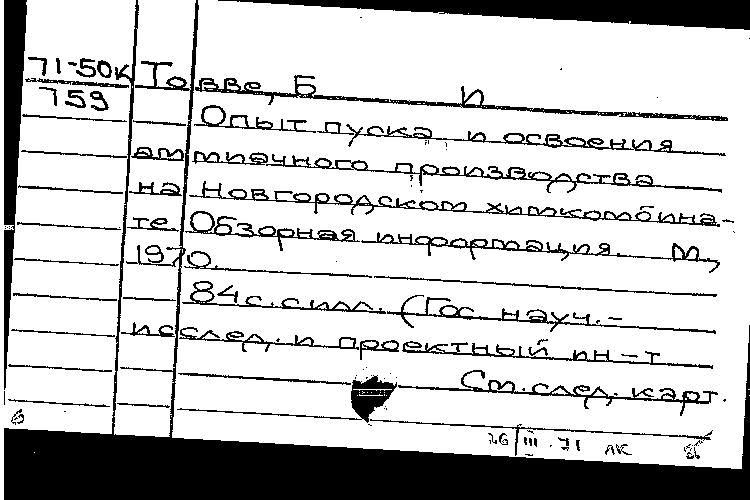 71-50к Товве, Б И
759
Опыт пуска и освоения
аммиачного производства
на Новгородском химкомбина-
те. Обзорная информация. М.,
1970.
84 с. с илл. (Гос. науч.-
исслед. и проектный ин-т
См. след. карт.
26/III.71 ЛК